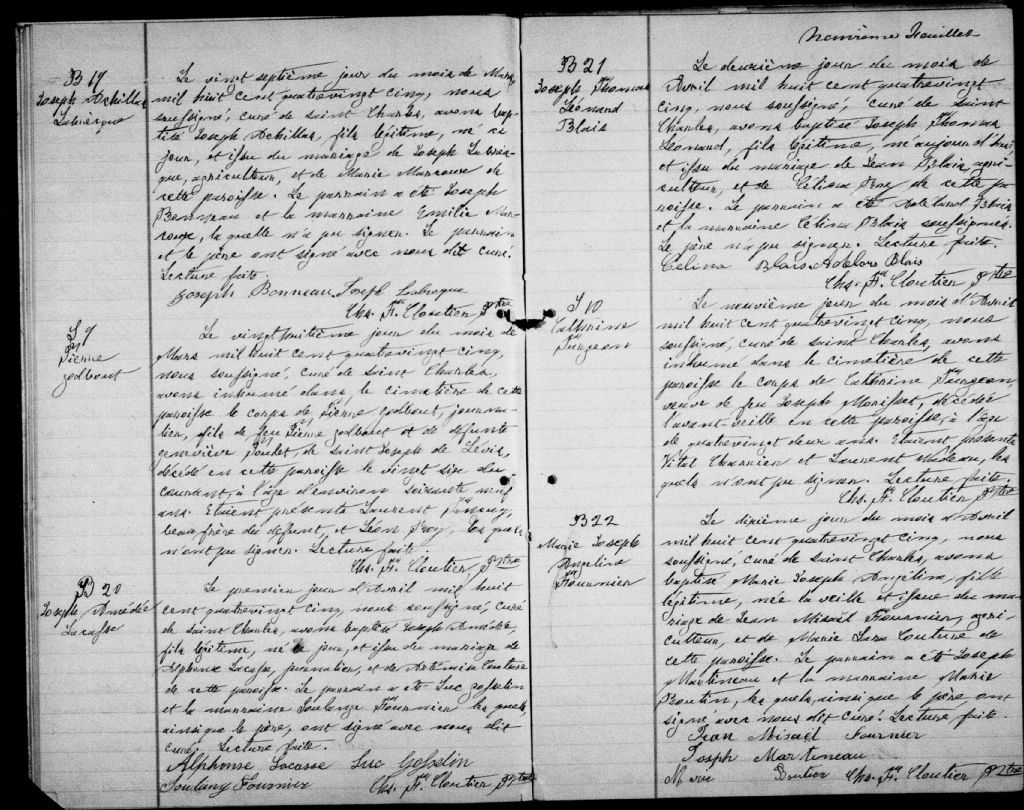 B 19
Joseph Achillas
Labrecque
Le vingt septième jour du mois de Mars
mil huit cent quatrevingt cinq, nous
soussigné, curé de saint Charles, avons bap-
tisé Joseph Achillas, fils légitime, né ce
jour, et issu du mariage de Joseph Labrec-
que, agriculteur, et de Marie Marcoux de
cette paroisse. Le parrain a été Joseph
Bonneau et la marraine Emilie Mar-
coux, la quelle n'a pu signer. Le parrain
et le père ont signé avec nous dit curé.
Lecture faite.
Joseph Bonneau Joseph Labrecque
Chs. F. Cloutier Ptre
S 9
Pierre
Godbout
Le vingthuitième jour du mois de
Mars mil huit cent quatrevingt cinq,
nous soussigné, curé de saint Charles,
avons inhumé dans le cimetière de cette
paroisse le corps de Pierre Godbout, journa-
lier, fils de feu Pierre Godbout et de défunte
Geneviève de saint Joseph de Lévis,
décédé en cette paroisse le vingt six du
courant, à l'âge d'environ soixante neuf
ans. Etaient présents Laurent
beau frère du défunt, et Léon Roy, les quels
n'ont pu signer. Lecture faite.
Chs. F. Cloutier Ptre
B 20
Joseph Amédée
Lacasse
Le premier jour d'Avril mil huit
cent quatrevingt cinq, nous soussigné, curé
de Saint Charles, avons baptisé Joseph Amédée,
fils légitime, né ce jour, et issu du mariage de
Alphonse Lacasse, journalier, et de Artémise Couture
de cette paroisse. Le parrain a été Luc Gosselin
et la marraine Soulange Fournier les quels,
ainsi que le père, ont signé avec nous dit
curé. Lecture faite.
Alphonse Lacasse Luc Gosselin
Soulang Fournier Chs. F. Cloutier Ptre
Neuvième Feuillet
B 21
Joseph Thomas
Léonard
Blais
Le deuxième jour du mois de
Avril mil huit cent quatrevingt
cinq, nous soussigné, curé de saint
Charles, avons baptisé Joseph Thomas
Léonard, fils légitime, né aujourd'hui
et issu du mariage de Jean Blais agri-
culteur, et de Célina Roy de cette pa
roisse. Le parrain a été Adélard Blais
et la marraine Célina Blais soussignés.
Le père n'a pu signer. Lecture faite.
Celina Blais Adelar Blais
Chs. F. Cloutier Ptre
S 10
Cathrine
Turgeon
Le neuvième jour du mois d'Avril
mil huit cent quatrevingt cinq, nous
soussigné, curé de saint Charles, avons
inhumé dans le cimetière de cette
paroisse le corps de Cathrine Turgeon,
veuve de feu Joseph Morisset, décédée
l'avant-veille en cette paroisse, à l'âge
de quatrevingt deux ans. Etaient présents
Vital Charrier et Laurent Nadeau, les
quels n'ont pu signer. Lecture faite.
Chs. F. Cloutier Ptre
B 22
Marie Joseph
Angélina
Fournier
Le dixième jour du mois d'Avril
mil huit cent quatrevingt cinq, nous
soussigné, curé de saint Charles, avons
baptisé Marie Joseph Angélina, fille
légitime, née la veille et issue du ma
riage de Jean Misaël Fournier, agri-
culteur, et de Marie Couture de
cette paroisse. Le parrain a été Joseph
Martineau et la marraine Marie
Boutin, les quels, ainsi que le père, ont
signé avec nous dit curé. Lecture faite.
Jean Misaël Fournier
Joseph Martineau
Marie Boutin Chs. F. Cloutier Ptre